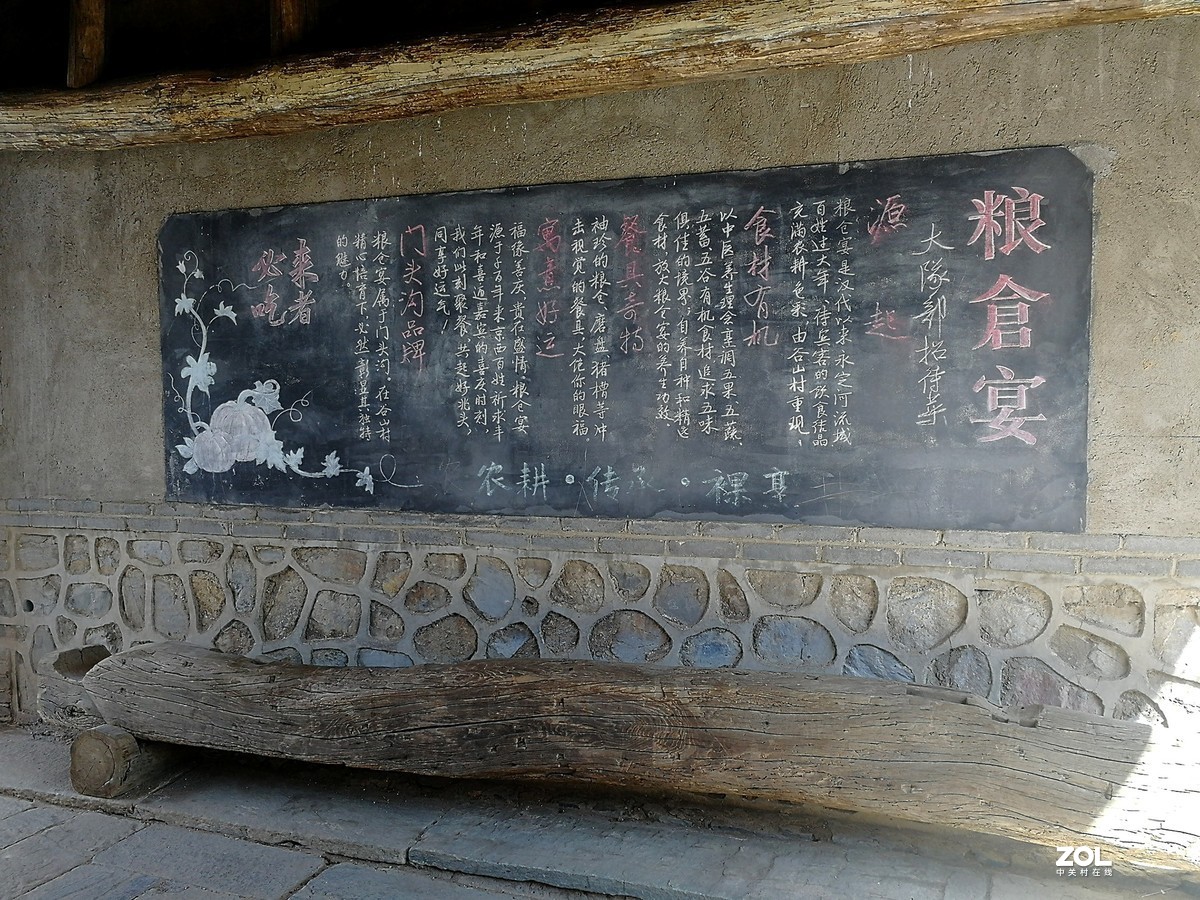 粮倉宴
大隊部招待菜
源起
粮仓宴是汉代以来永定河流域
百姓过大年、待宾客的饮食结晶
充满农耕色彩，由谷山村重现、
食材有机
以中医养生理会烹调五果五蔬、
五蓄五谷有机食材，追求五味
俱佳的境界，自养自种和精选
食材，放大粮仓宴的养生功效、
餐具奇特
袖珍的粮仓、磨盘、猪槽等冲
击视觉的餐具，大饱你的眼福
寓意好运
福缘善庆，贵在盛情、粮仓宴
源于千百年来京西百姓祈求丰
年和喜逈嘉宾的喜庆时刻，
我们此刻聚餐，共起好兆头，
同享好运气！
门头沟品牌
粮仓宴属于门头沟、在谷山村
精心培育下，必然彰显其独特
的魅力。
来者
必吃
农耕·传承·裸烹
ZOL
中关村在线